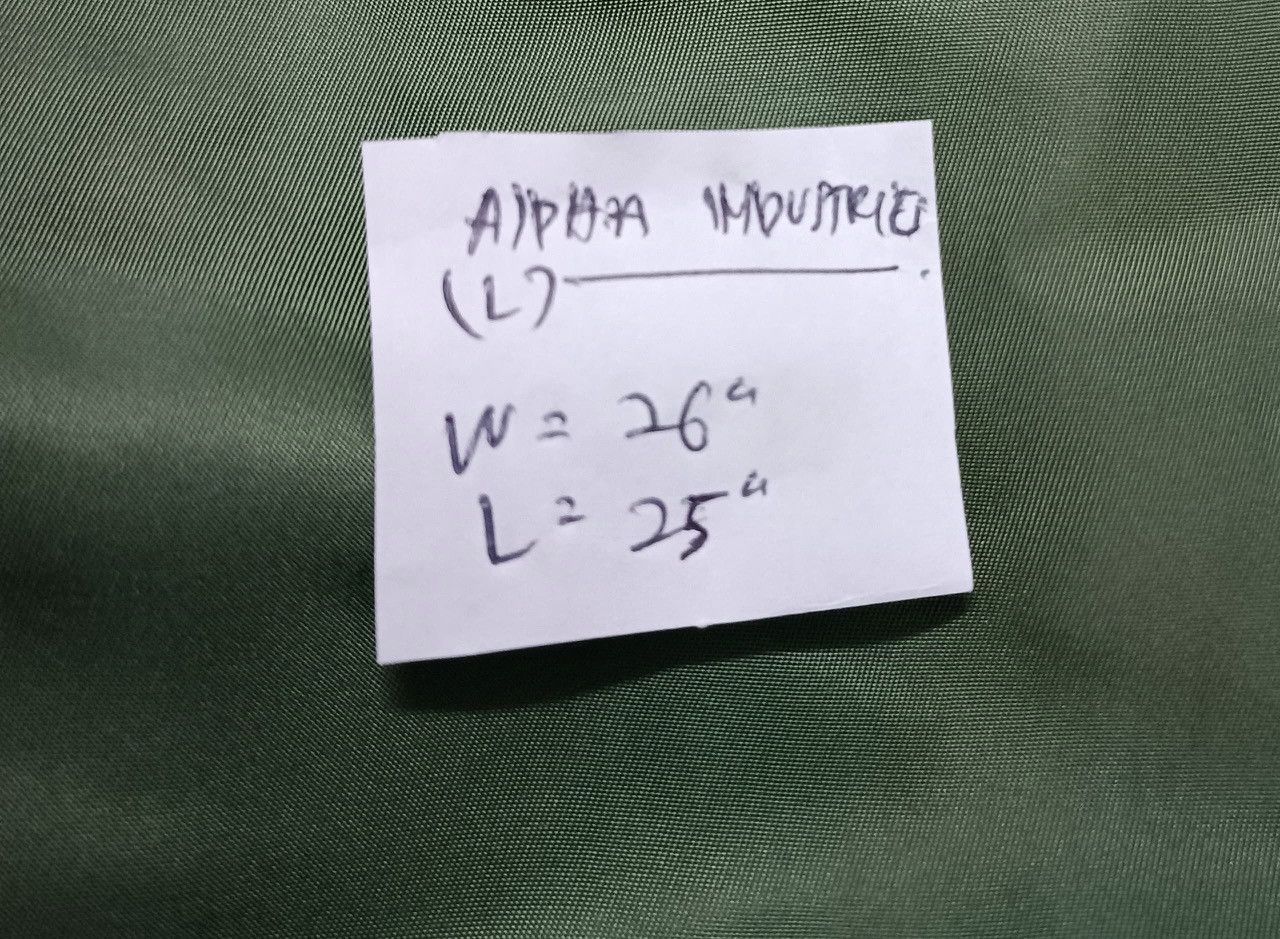 AlPHAA INDUSTRIES
(L)
W = 26"
L = 25"